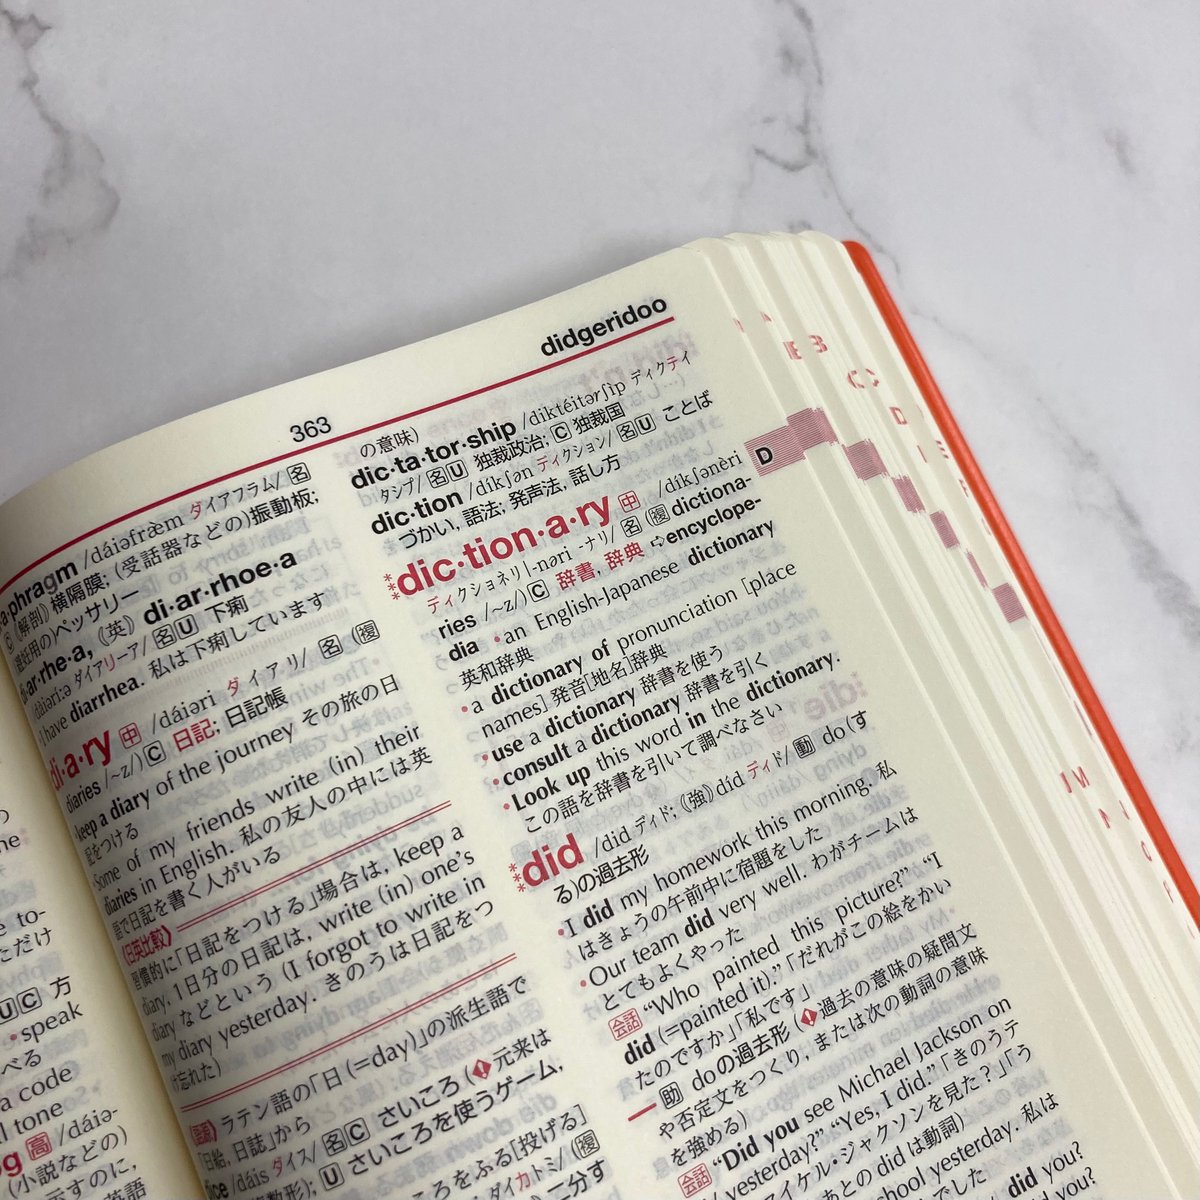 363
didgeridoo
/dáiəfræ̀m ダイアフラム/ 名
C (解剖) 横隔膜; (受話器などの)振動板;
避妊用のペッサリー
di·ar·rhe·a, (英) di·ar·rhoe·a
/dàiərí:ə ダイアリーア/ 名U 下痢
I have diarrhea. 私は下痢しています
di·a·ry 中 /dáiəri ダイアリ/ 名 (複
diaries /~z/)C 日記; 日記帳
keep a diary of the journey その旅の日
記をつける
Some of my friends write (in) their
diaries in English. 私の友人の中には英
語で日記を書く人がいる
《日英比較》
習慣的に「日記をつける」場合は, keep a
diary, 1日分の日記は, write (in) one's
diary などという (I forgot to write in
my diary yesterday. きのうは日記をつ
け忘れた)
語源 ラテン語の「日 (=day)」の派生語で
「日給, 日誌」から
/dáis ダイス/ 名C さいころ (元来は
U さいころを使うゲーム,
ころをふる[投げる]
の意味)
dic·ta·tor·ship /diktéitərʃìp ディクテイ
タシプ/ 名U 独裁政治; C 独裁国
dic·tion /díkʃən ディクション/ 名U ことば
づかい, 語法; 発声法, 話し方
**dic·tion·a·ry 中 /díkʃənèri
ディクショネリ|-nəri -ナリ/ 名 (複 dictiona-
ries /~z/)C 辞書, 辞典 ⇨encyclope-
dia •an English-Japanese dictionary
英和辞典
•a dictionary of pronunciation [place
names] 発音[地名]辞典
•use a dictionary 辞書を使う
•consult a dictionary 辞書を引く
•Look up this word in the dictionary.
この語を辞書を引いて調べなさい
***did /did ディド; (強) díd ディド/ 動 do (す
る)の過去形
•I did my homework this morning. 私
はきょうの午前中に宿題をした
•Our team did very well. わがチームは
とてもよくやった
会話 “Who painted this picture?” “I
did (=painted it).” 「だれがこの絵をかい
たのですか」「私です」
助 doの過去形 (過去の意味の疑問文
や否定文をつくり, または次の動詞の意味
を強める)
会話 “Did you see Michael Jackson on
yesterday?” “Yes, I did.” 「きのうテ
マイケル・ジャクソンを見た？」「う
あとの did は動詞)
school yesterday. 私は
did you?
D
speak
a code